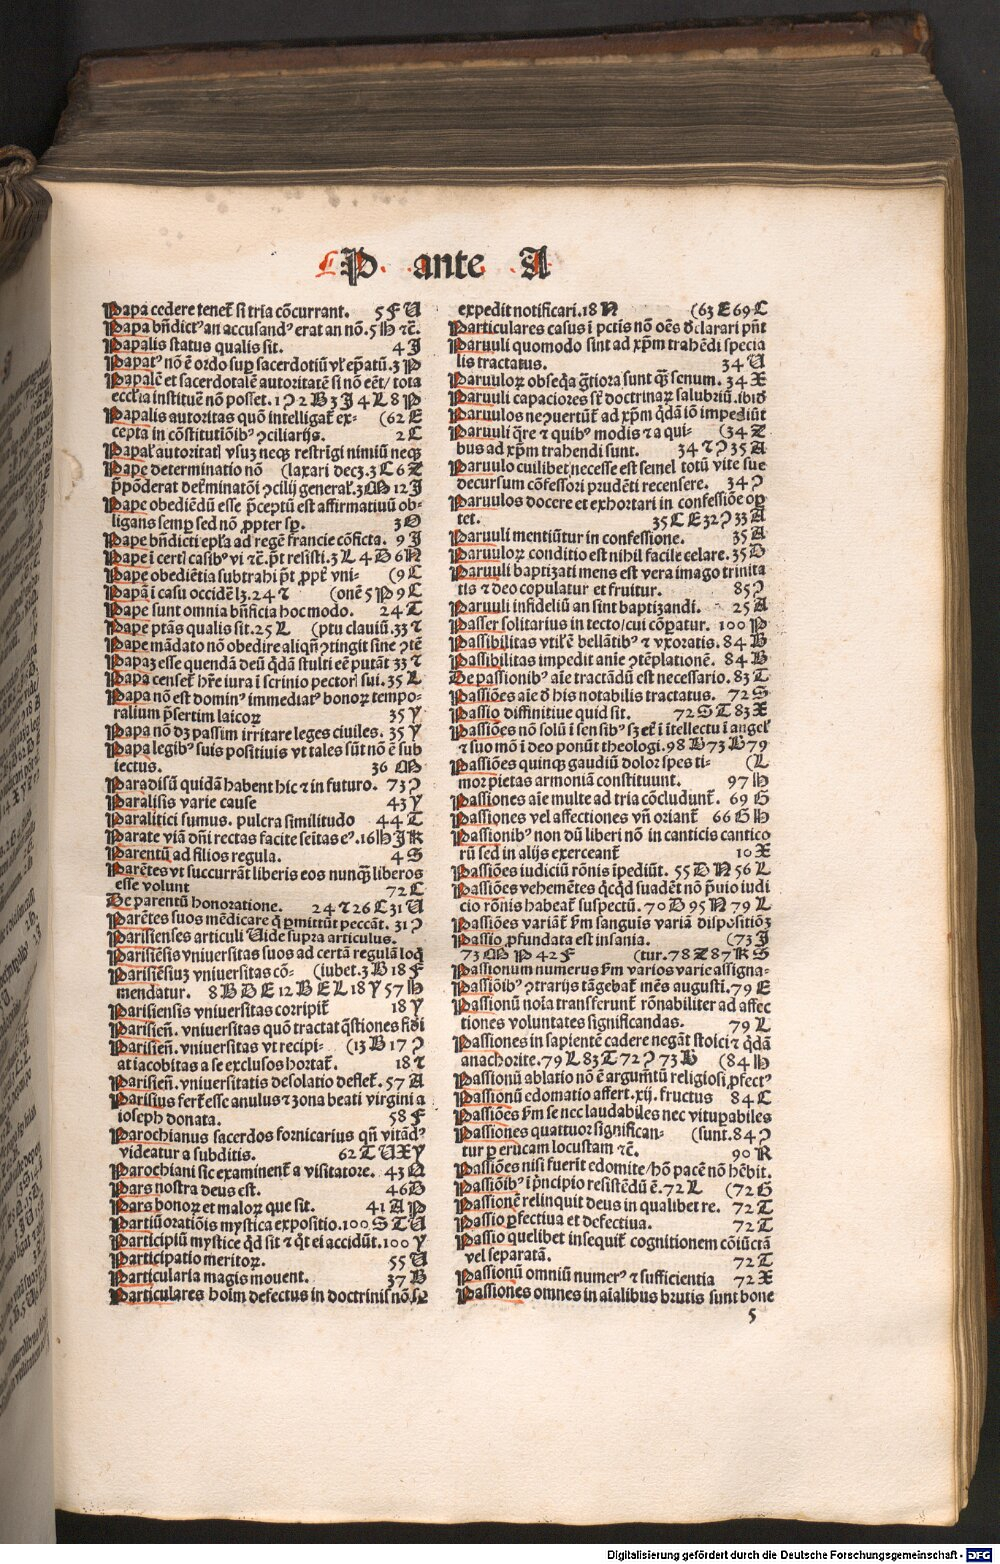 P. ante. A
Papa cedere tenet̄ si tria cōcurrant. 5 F U
Papa bn̄dictꝰ an accusandꝰ erat an nō. 5 H ⁊c̄.
Papalis status qualis sit. 4 J
Papatꝰ nō ē ordo suꝑ sacerdotiū vl̓ ep̄atū. 3 P
Papalē et sacerdotalē autoritatē si nō eēt/ tota
eccl̓ia instituē nō posset. 1 ? 2 B 3 J 4 L 8 P
Papalis autoritas quō intelligat̄ ex= (62 E
cepta in cōstitutiōibꝰ ꝯciliarijs. 2 C
Papal̓ autoritatꝭ vsuꝫ neqꝫ restrīgi nimiū neqꝫ
Pape determinatio nō (laxari decꝫ. 3 C 6 Z
p̄pōderat det̓minatōi ꝯcilij general̓. 3 M 12 J
Pape obediēdū esse p̄ceptū est affirmatiuū ob=
ligans semꝑ sed nō ꝓpter sꝑ. 3 O
Pape bn̄dicti epl̓a ad regē francie cōficta. 9 J
Pape ī certꝭ casibꝰ vi ⁊c̄. p̄t resisti. 3 L 4 D 6 N
Pape obediētia subtrahi p̄t ꝓpt̄ vni= (9 C
Papā ī casu occidē lꝫ. 24 ⁊ (onē 5 P 9 C
Pape sunt omnia bn̄ficia hoc modo. 24 T
Pape ptās qualis sit. 25 L (ptu clauiū. 33 ⁊
Pape mādato nō obedire aliqn̄ ꝯtingit sine ꝯtē
Papaꝫ esse quendā deū q̄dā stulti eē putāt 33 ⁊
Papa censet̄ hr̄e iura ī scrinio pectorꝭ sui. 35 L
Papa nō est dominꝰ immediatꝰ bonoꝝ tempo=
ralium p̄sertim laicoꝝ 35 Y
Papa nō dꝫ passim irritare leges ciuiles. 35 Y
Papa legibꝰ suis positiuis vt tales sūt nō ē sub
iectus. 36 M
Paradisū quidā habent hic ⁊ in futuro. 73 ?
Paralisis varie cause 43 Y
Paralitici sumus. pulcra similitudo 44 T
Parate viā dn̄i rectas facite seītas eꝰ. 16 H J K
Parentū ad filios regula. 4 S
Parētes vt succurrāt liberis eos nunqꝫ liberos
esse volunt 72 C
De parentū honoratione. 24 ⁊ 26 C 31 U
Parētes suos mēdicare q̄ ꝑmittūt peccāt. 31 ?
Parisienses articuli Uide supra articulus.
Parisiēsis vniuersitas suos ad certā regulā loq̄
Parisiēsiuꝫ vniuersitas cō= (iubet. 3 B 18 F
mendatur. 8 B D E 12 B E L 18 Y 57 H
Parisiensis vniuersitas corripit̄ 18 Y
Parisien̄. vniuersitas quō tractat q̄stiones fidi
Parisien̄. vniuersitas vt recipi= (13 B 17 ?
at iacobitas a se exclusos hortat̄. 18 ⁊
Parisien̄. vniuersitatis desolatio deflet̄. 57 A
Parisius fert̄ esse anulus ⁊ zona beati virgini a
ioseph donata. 58 F
Parochianus sacerdos fornicarius qn̄ vitādꝰ
videatur a subditis. 62 T U X Y
Parochiani sic examinent̄ a visitatore. 43 Q
Pars nostra deus est. 46 D
Pars bonoꝝ et maloꝝ que sit. 41 A P
Partiū oratiōis mystica expositio. 100 S T U
Participiū mystice q̄d sit ⁊ q̄t ei accidūt. 100 Y
Participatio meritoꝝ. 55 U
Particularia magis mouent. 37 B
Particulares hoīm defectus in doctrinis nō sꝑ
expedit notificari. 18 N (63 E 69 C
Particulares casus ī pctīs nō oēs declarari pn̄t
Paruuli quomodo sint ad xp̄m trahēdi specia
lis tractatus. 34 U
Paruuloꝝ obseq̄a gr̄tiora sunt qꝫ senum. 34 X
Paruuli capaciores sūt doctrinaꝝ salubriū. ibid
Paruulos ne ꝯuertūt̄ ad xp̄m q̄dā iō impediūt
Paruuli q̄re ⁊ quibꝰ modis ⁊ a qui= (34 Z
bus ad xp̄m trahendi sunt. 34 ⁊ ? 35 A
Paruulo cuilibet necesse est semel totū vite sue
decursum cōfessori prudēti recensere. 34 ?
Paruulos docere et exhortari in confessiōe opꝫ
tet. 35 C E 32 ? 33 A
Paruuli mentiūtur in confessione. 35 A
Paruuloꝝ conditio est nihil facile celare. 35 D
Paruuli baptizati mens est vera imago trinita
tis ⁊ deo copulatur et fruitur. 85 ?
Paruuli infideliū an sint baptizandi. 25 A
Passer solitarius in tecto/ cui cōꝑatur. 100 P
Passibilitas vtil̓ ē bellātibꝰ ⁊ vxoratis. 84 B
Passibilitas impedit aīe ꝯtēplationē. 84 B
De passionibꝰ aīe tractādū est necessario. 83 T
Passiōes aīe d̓ his notabilis tractatus. 72 S
Passio diffinitiue quid sit. 72 S T 83 X
Passiōes nō solū ī sensibꝰ sꝫ et̄ ī itellectu ī angel̓
⁊ suo mō ī deo ponūt theologi. 98 B 73 B 79
Passiōes quinqꝫ gaudiū dolor spes ti= (L
mor pietas armoniā constituunt. 97 H
Passiones aīe multe ad tria cōcludunt̄. 69 G
Passiones vel affectiones vn̄ oriant̄ 66 G H
Passionibꝰ non dū liberi nō in canticis cantico
rū sed in alijs exerceant̄ 10 X
Passiōes iudiciū rōnis īpediūt. 55 D N 56 L
Passiōes vehemētes q̄cq̄d suadēt nō p̄uio iudi
cio rōnis habeat̄ suspectū. 70 D 95 N 79 L
Passiōes variāt̄ ẜm sanguis variā dispositiōꝫ
Passio ꝓfundata est insania. (73 J
73 M P 42 F (tur. 78 Z 87 K S
Passionum numerus ẜm varios varie assigna=
Passiōibꝰ ꝯtrarijs tāgebat̄ mēs augusti. 79 E
Passionū noīa transferunt̄ rōnabiliter ad affec
tiones voluntates significandas. 79 L
Passiones in sapientē cadere negāt stoici ⁊ q̄dā
anachorite. 79 L 83 T 72 ? 73 B (84 H
Passionū ablatio nō ē argum̄tū religiosi ꝑfectꝰ
Passionū edomatio affert. xij. fructus 84 C
Passiōes ẜm se nec laudabiles nec vituꝑabiles
Passiones quattuor significan= (sunt. 84 ?
tur ꝑ erucam locustam ⁊c̄. 90 R
Passiōes nisi fuerit edomite/ hō pacē nō hēbit.
Passiōibꝰ ī p̄ncipio resistēdū ē. 72 L (72 G
Passionē relinquit deus in qualibet re. 72 T
Passio ꝑfectiua et defectiua. 72 T
Passio quelibet insequit̄ cognitionem cōiūctā
vel separatā. 72 T
Passionū omniū numerꝰ ⁊ sufficientia 72 X
Passiones omnes in aīalibus brutis sunt bone
5
Digitalisierung gefördert durch die Deutsche Forschungsgemeinschaft - DFG